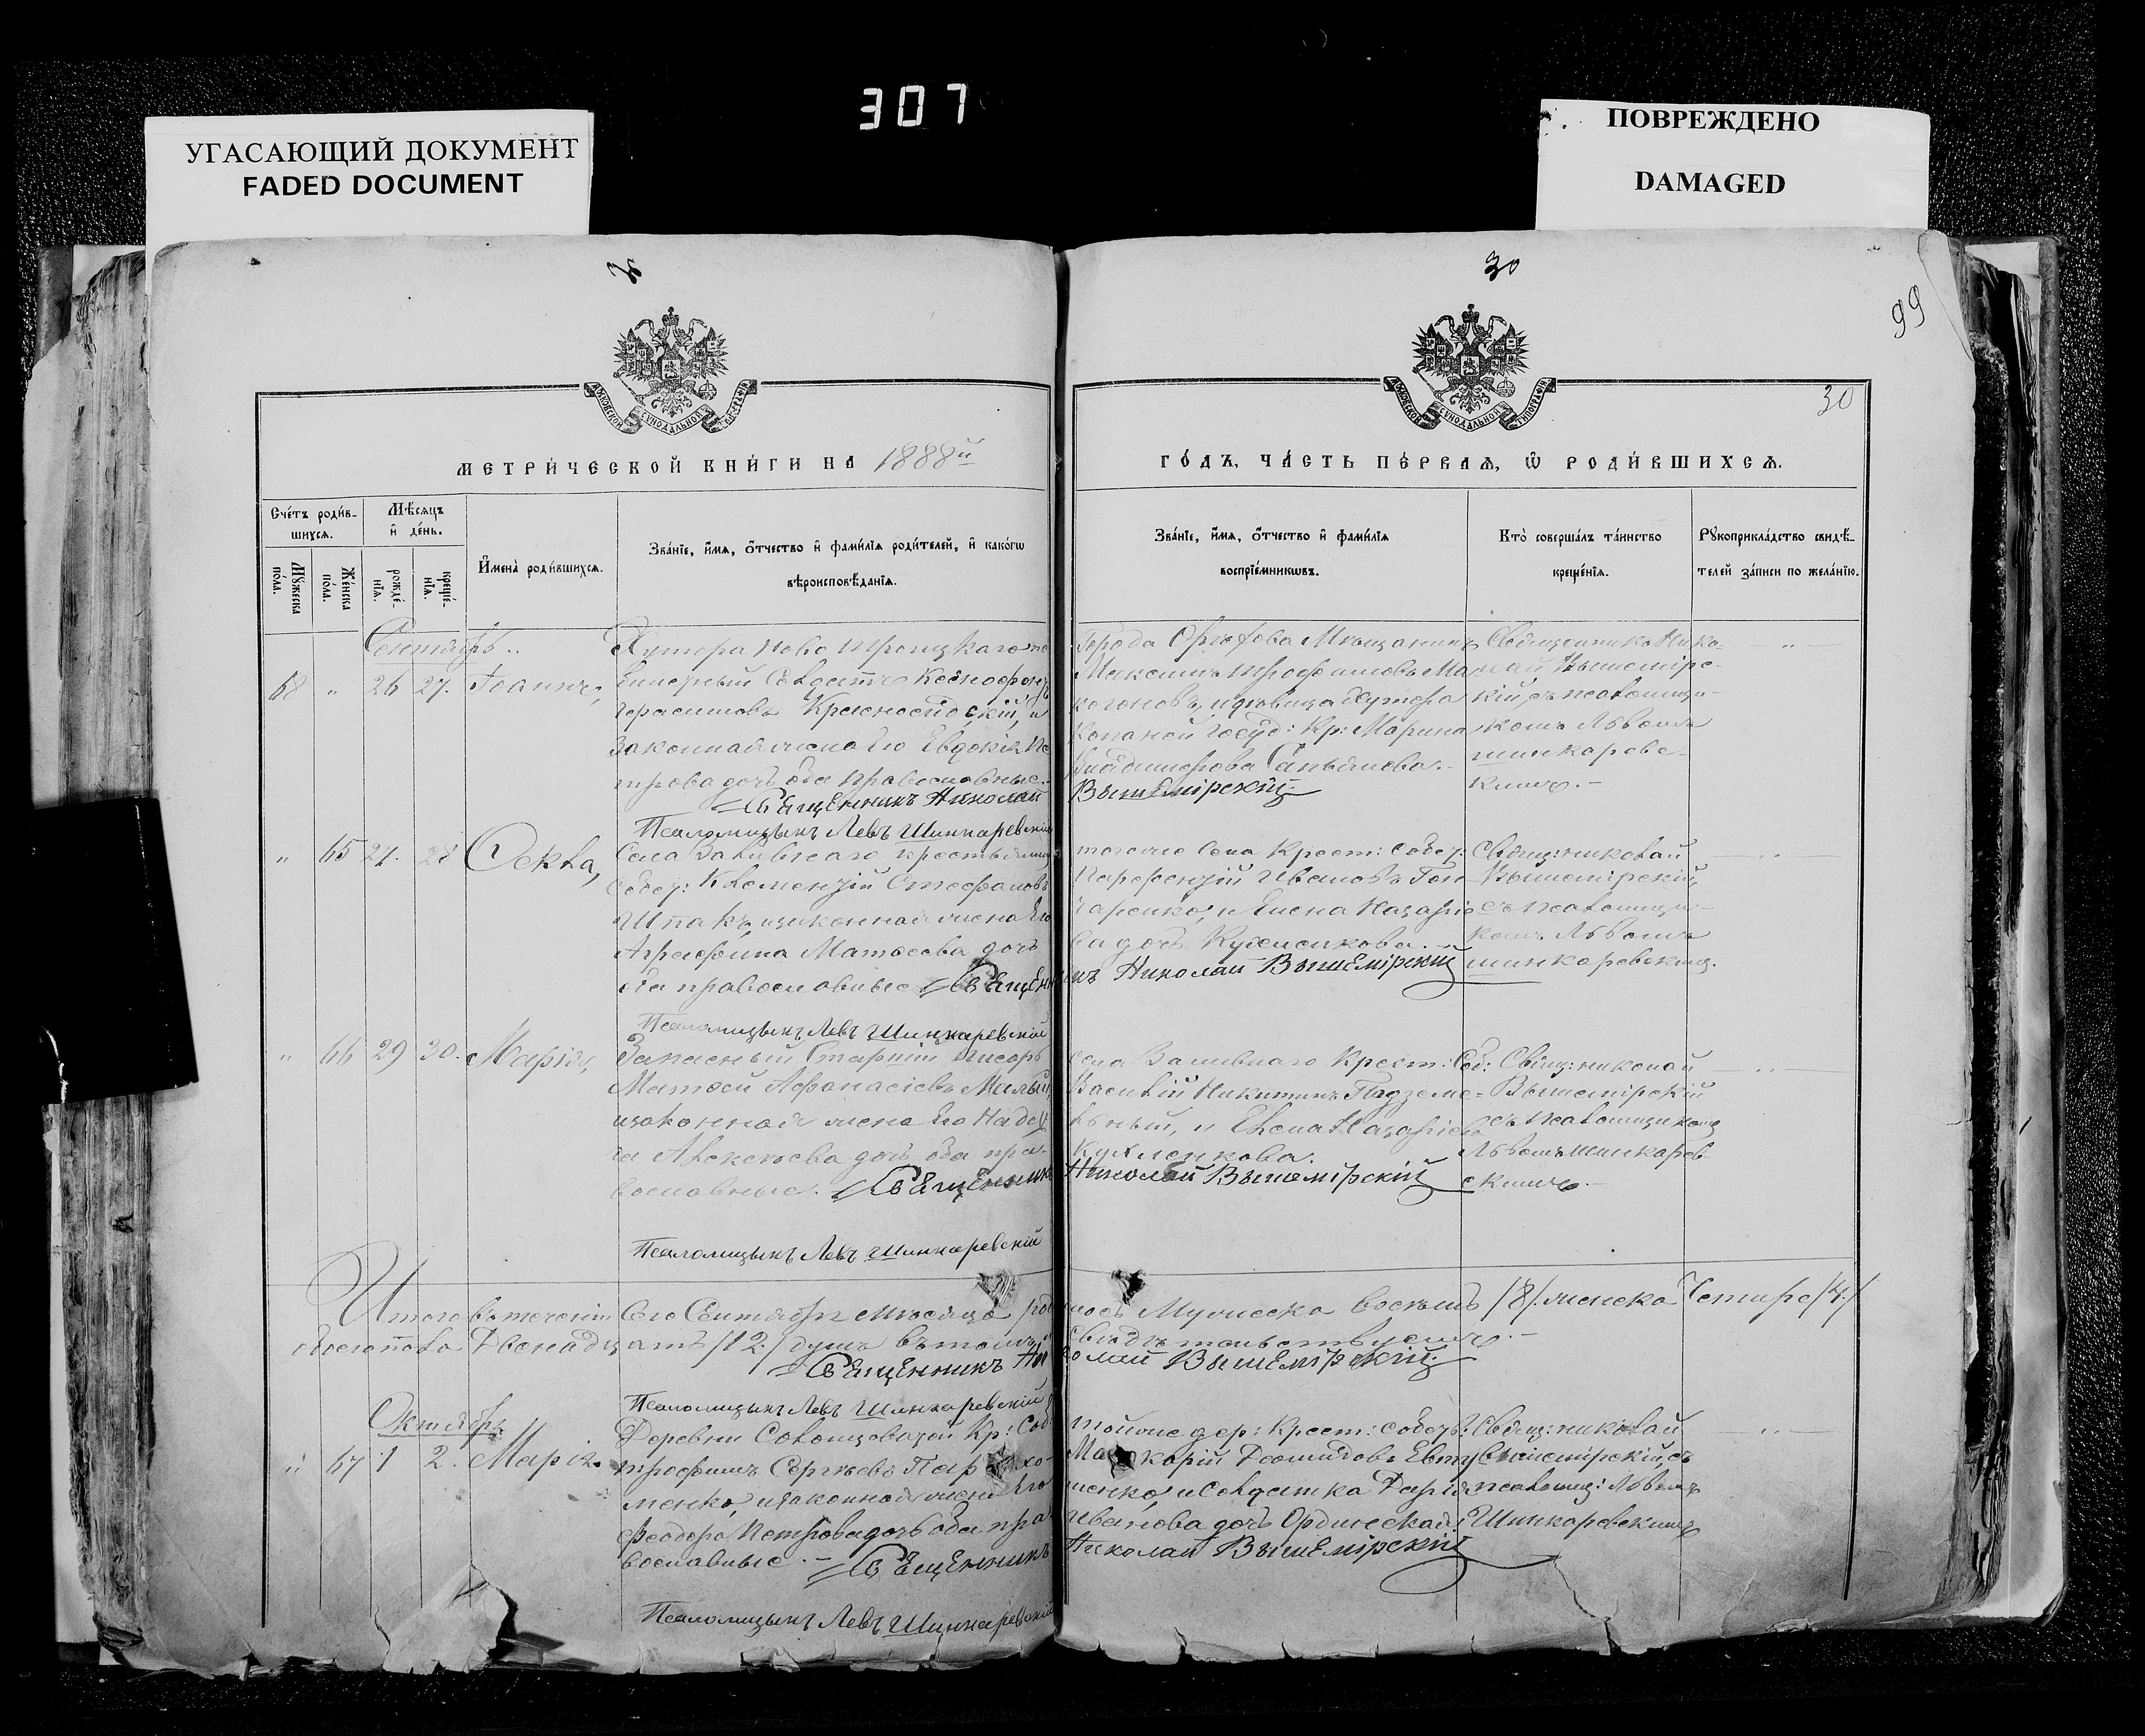 307
УГАСАЮЩИЙ ДОКУМЕНТ
FADED DOCUMENT
ПОВРЕЖДЕНО
DAMAGED
30
99
30
МЕТРИ́ЧЕСКОЙ КНИ́ГИ НА 1888й
ГО́ДЪ, ЧА́СТЬ ПЕ́РВАѦ, Ѡ҆ РОДИ́ВШИХСѦ.
Сче́тъ роди́в-
шихсѧ.
Мѣ́сѧцъ
и҆ де́нь.
Мꙋ́жеска
по́ла.
Же́нска
по́ла.
рожде́-
нїѧ.
креще́-
нїѧ.
И҆мена̀ роди́вшихсѧ.
Зва́нїе, и҆́мѧ, ѻ҆́тчество и҆ фами́лїѧ роди́телей, и҆ како́гѡ
вѣроисповѣ́данїѧ.
Зва́нїе, и҆́мѧ, ѻ҆́тчество и҆ фами́лїѧ
воспрїе́мникѡвъ.
Кто̀ соверша́лъ та́инство
креще́нїѧ.
Рꙋкоприкла́дство свидѣ́-
телей за́писи по жела́нїю.
Сентябрь
68 " 26 27. Іоаннъ,
Хутора Ново Троицкаго
Герасимовъ
законная жена его Евдокія Пе
трова дочь оба православные.
Священникъ Николай
Псаломщикъ Левъ Шинкаревскій
Города Мѣщанинъ
Максимъ Трофимовъ
вдовица Хутора
Госуд: Кр: Марина
Вышемірскій
Священникъ Нико-
лай Вышемірс-
кій, съ псаломщи-
комъ Львомъ
шинкаревс-
кимъ.
" 65 27. 28 Ѳекла,
Села крестьянинъ
собст: Климентій Стефановъ
Шпакъ, и законная жена его
Агрефина Матѳеева дочь
оба православные Священн
Псаломщикъ Левъ Шинкаревскій
тогоже села Крест: собст:
Парфентій Ивановъ Гон
чаренко, и Елена Назаріе
ва дочь
икъ Николай Вышемірскій
Священ: николай
Вышемірскій,
съ псаломщи-
комъ Львомъ
шинкаревскимъ.
" 66 29 30. Марія,
Запасный Старшій Писарь
Матѳей Афанасіевъ Малый
и законная жена его Надеж
да Алексѣева дочь оба пра-
вославные. Священникъ
Псаломщикъ Левъ Шинкаревскій
села Крест: Соб:
Василій Никитинъ Подземе-
льный, и Елена Назаріева
Николай Вышемірскій
Свящ: николай
Вышемірскій
съ псаломщикомъ
Львомъ шинкарев-
скимъ.
Итого въ теченіи сего Сентября мѣсяца
лось Мужеска восемь /8/. женска Четыре /4./
Двѣнадцать /12./ душъ въ томъ
свидѣтельствуемъ.
Священникъ Николай Вышемірскій
Псаломщикъ Левъ Шинкаревскій
Октябрь
" 67 1 2. Марія.
Деревни Кр: Соб
Трофимъ Сергѣевъ Пархо-
менко, и законная жена его
Феодора Петрова дочь оба пра
вославные. Священникъ
Псаломщикъ Левъ Шинкаревскій
тойже дер: Крест: собств:
Макарій Евту
шенко и солдатка Дарія
Иванова дочь Ординская.
Николай Вышемірскій
Священ: николай
Вышемірскій, съ
псаломщ: Львомъ
Шинкаревскимъ